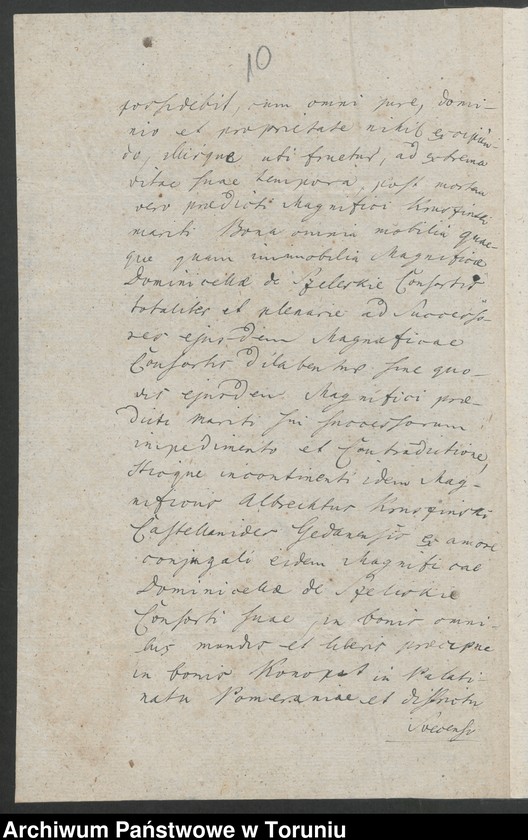 10
possidebit, cum omni jure, domi-
nio et proprietate nihil excipiun-
do, illisque uti fruetur, ad extrema
vitae suae tempora, post mortem
vero praedicti Magnifici
mariti Bona omnia mobilia quae-
que quam immobilia Magnificae
Dominicellae de Szelerskie Consortis
totaliter et plenarie ad Successo-
res ejusdem Magnificae
Consortis dilabentur sine quo-
vis ejusdem Magnifici prae-
dicti mariti sui successorum
impedimento et Contradictione,
Hicque incontinenti idem Mag-
nificus Albrechtus
Castellanides Gedanensis ex amore
conjugali eidem Magnificae
Dominicellae de
Consorti suae, in bonis omni-
bus mundis et liberis praecipue
in bonis Konopat in Palati-
natu Pomeraniae et districtu
Svecensi
Archiwum Państwowe w Toruniu